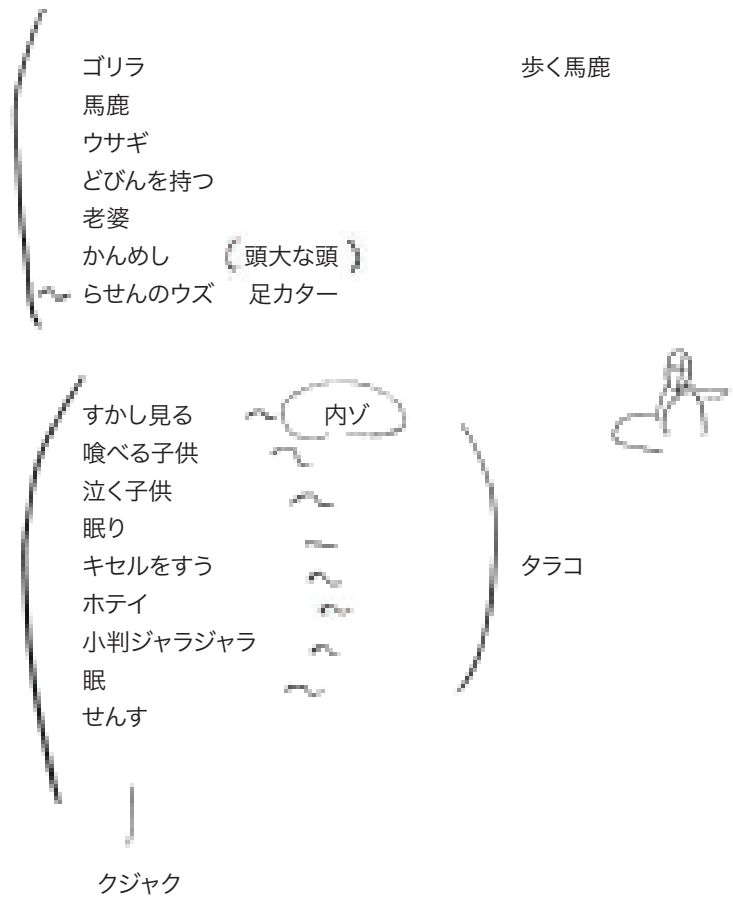 ゴリラ 歩く馬鹿
馬鹿
ウサギ
どびんを持つ
老婆
かんめし （頭大な頭）
〜らせんのウズ 足カター
すかし見る 〜 内ゾ
喰べる子供 〜
泣く子供 〜
眠り 〜
キセルをすう 〜 タラコ
ホテイ 〜
小判ジャラジャラ 〜
眠 〜
せんす
クジャク